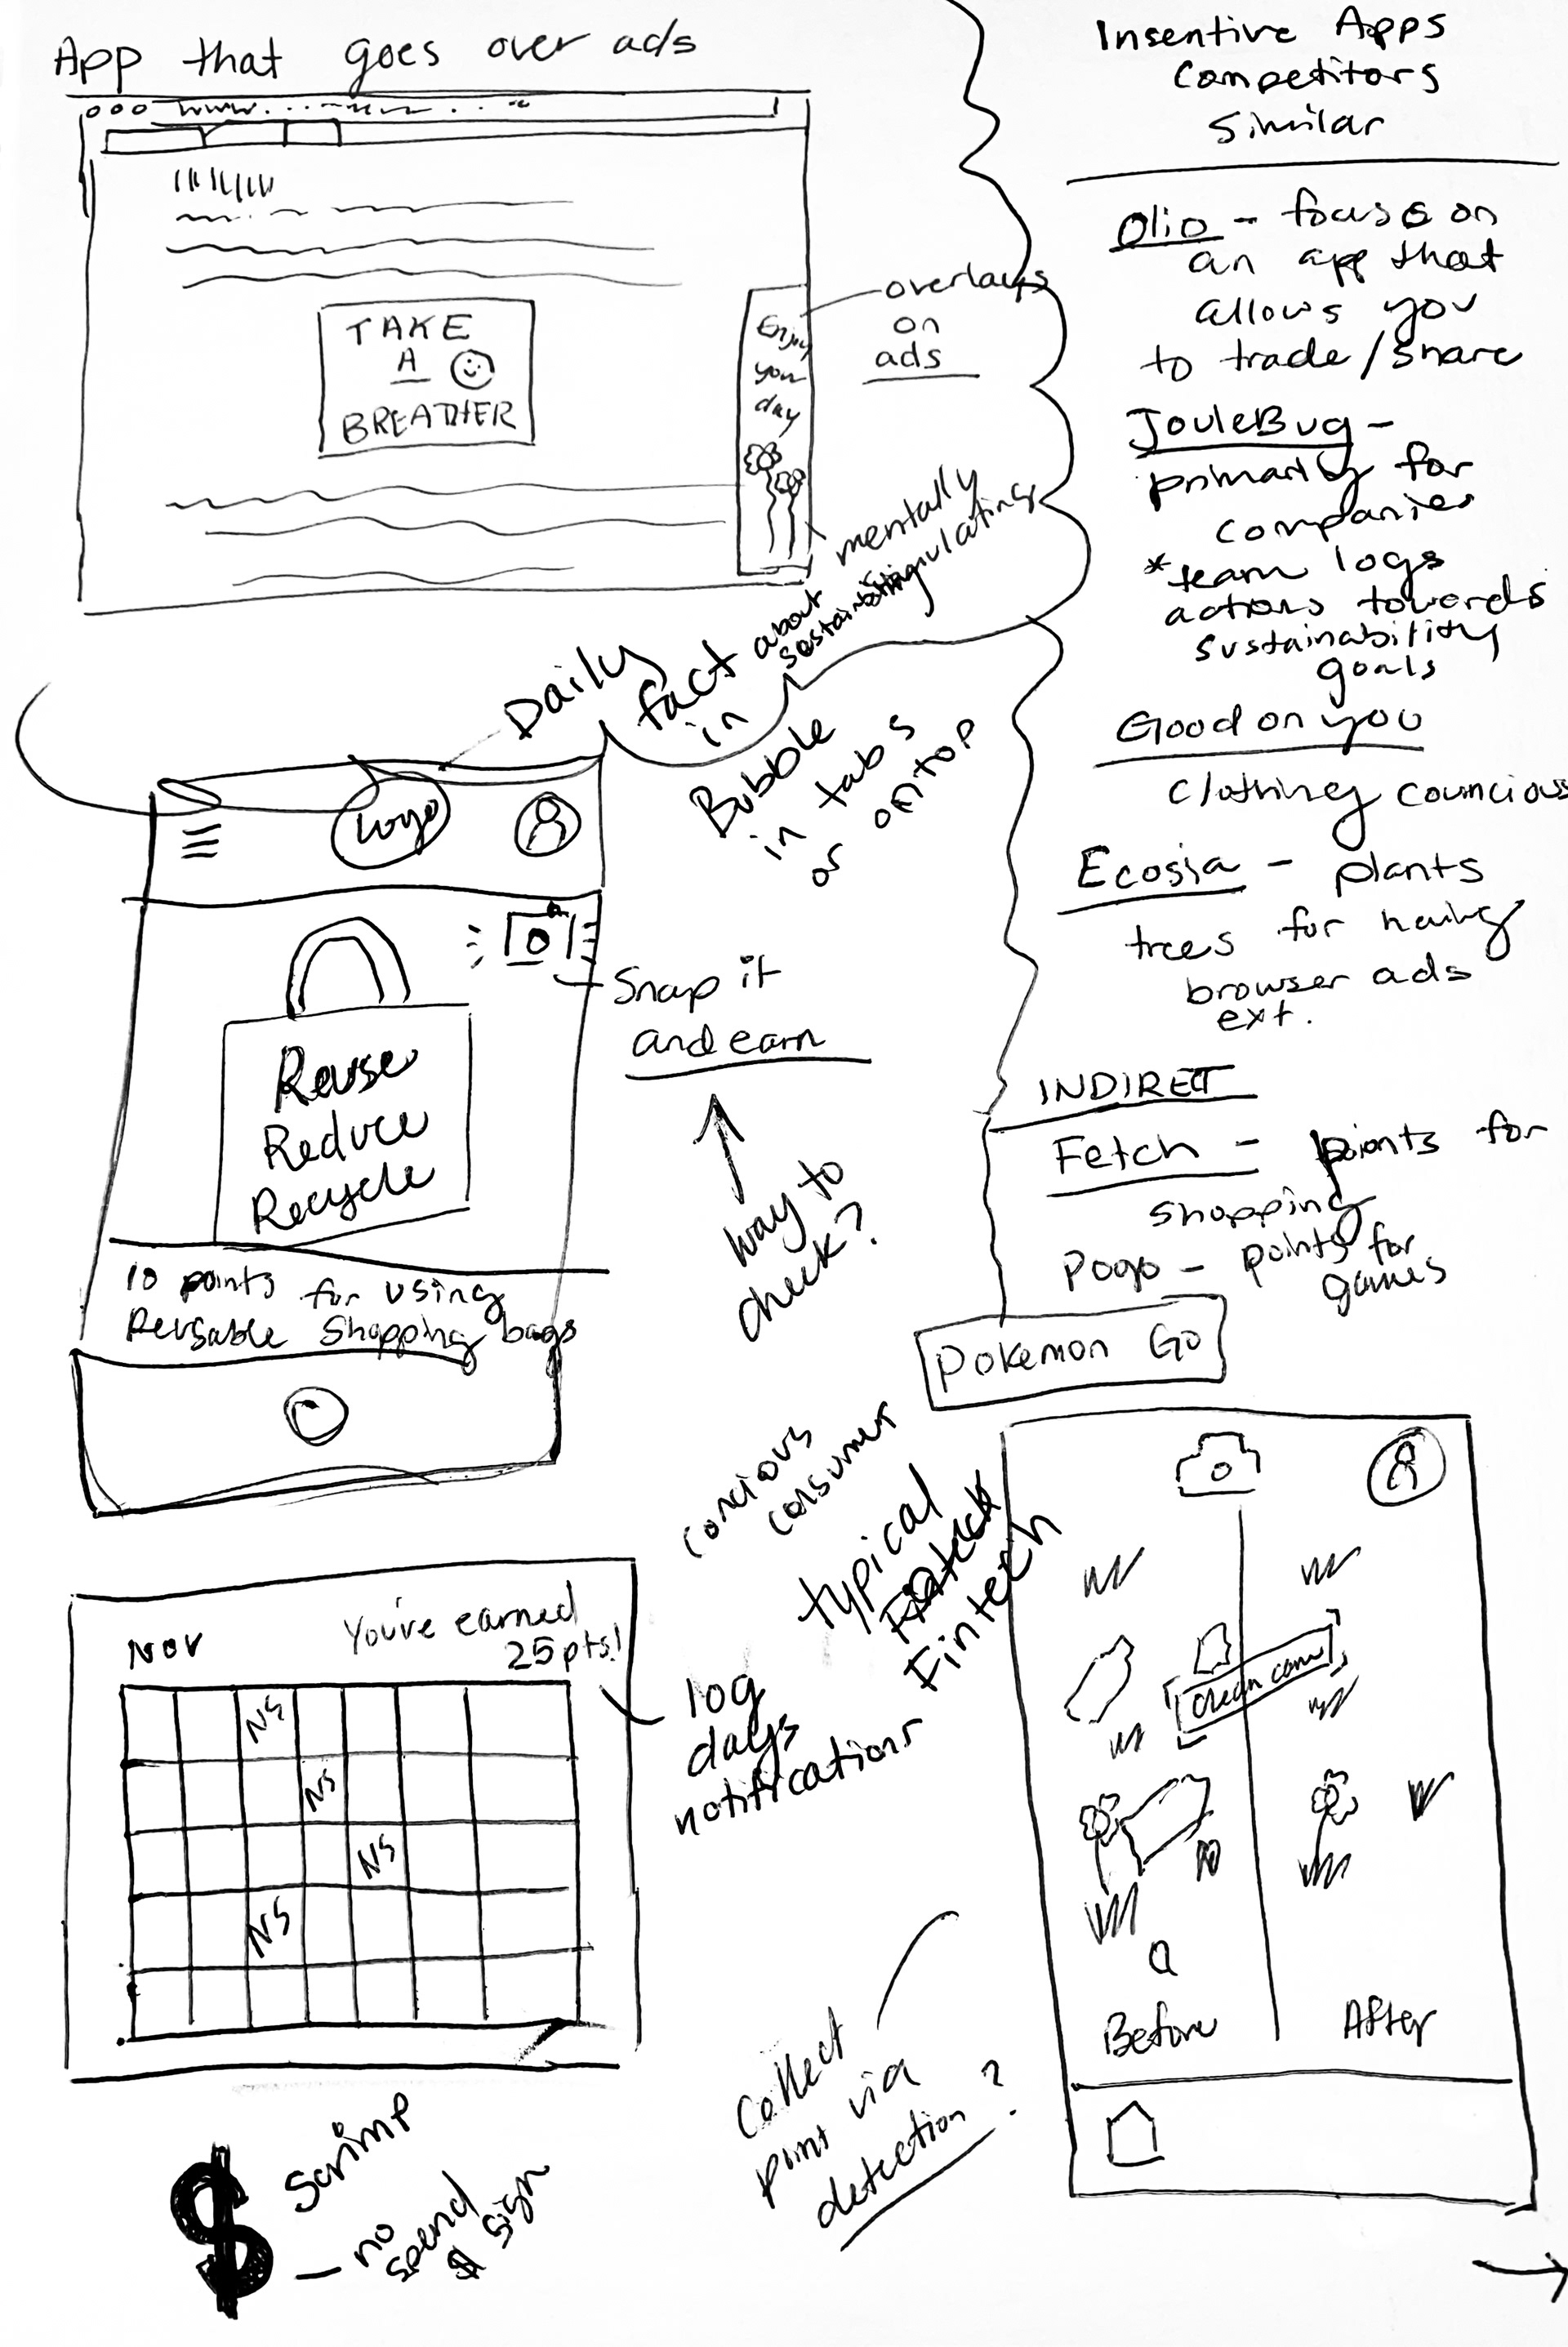 App that goes over ads
www.
TAKE
A
BREATHER
Enjoy
you
day
overlays
on
ads
mentally
Daily
fact about
in
Bubble
in tabs
or ontop
Logo
Snap it
and earn
way to
check?
Reuse
Reduce
Recycle
10 points for using
Reusable Shopping bags
concious
consumer
typical
Fintech
Nov
You've earned
25pts!
NS
NS
NS
NS
log
days
notifications
$ Scrimp
no
spend
$ sign
Insentive Apps
Competitors
Similar
Olio - focus on
an app that
allows you
to trade/share
JouleBug -
primarily for
companies
*team logs
actions towards
sustainability
goals
Good on you
clothing councious
Ecosia - plants
trees for having
browser ads
ext.
INDIRECT
Fetch - points for
shopping
Pogo - points for
games
Pokemon Go
Before
After
Collect
point via
detection?